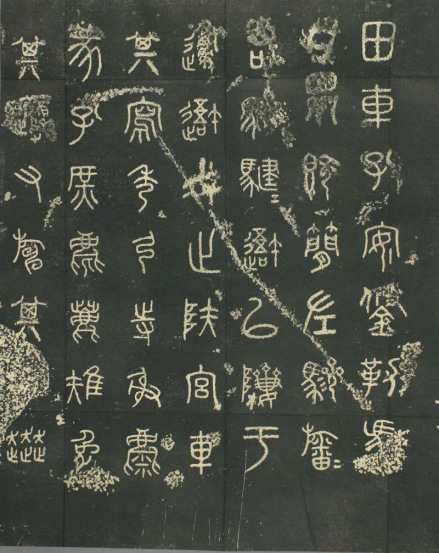 田車孔安鋚勒馮
四介既簡左驂旛〓
右驂騝〓避以隮于
邍避戎止陸宮車
其寫秀弓寺射麋
豕孔庶麀鹿雉兔
其又旃其